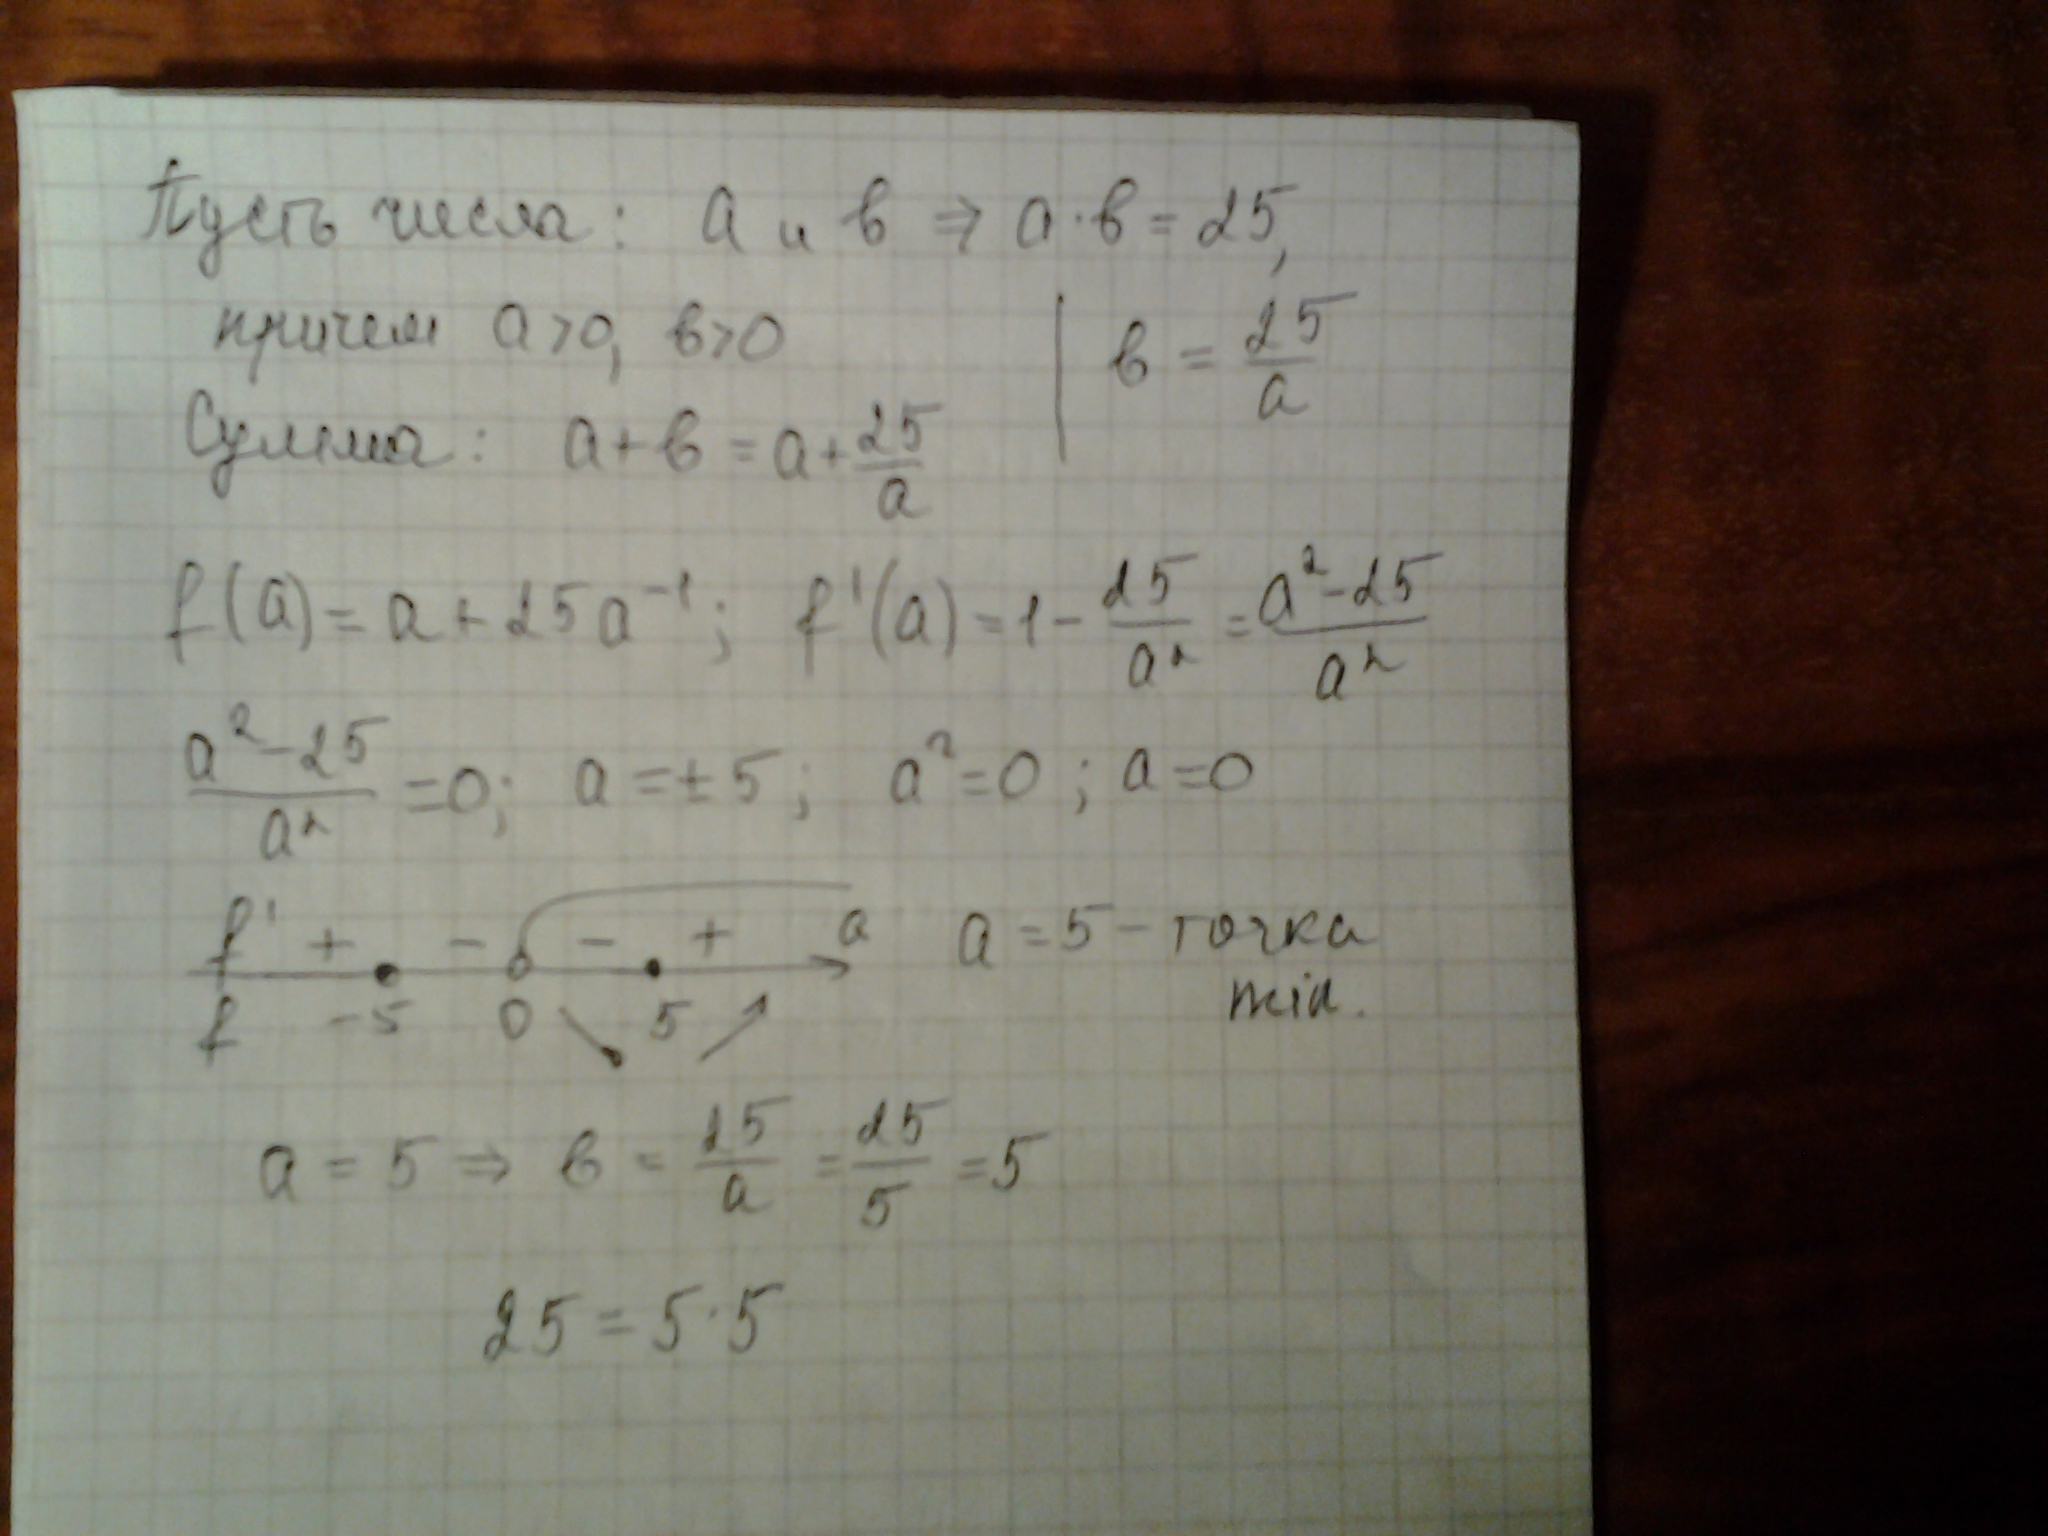 Пусть числа: a и b ⇒ a·b = 25,
причем a>0, b>0 | b = 25/a
Сумма: a+b = a+25/a
f(a) = a+25a⁻¹; f'(a) = 1 - 25/a² = (a²-25)/a²
(a²-25)/a² = 0; a = ±5; a² = 0; a = 0
f' + - - + a a = 5 - точка
f -5 0 5 min.
a = 5 ⇒ b = 25/a = 25/5 = 5
25 = 5·5